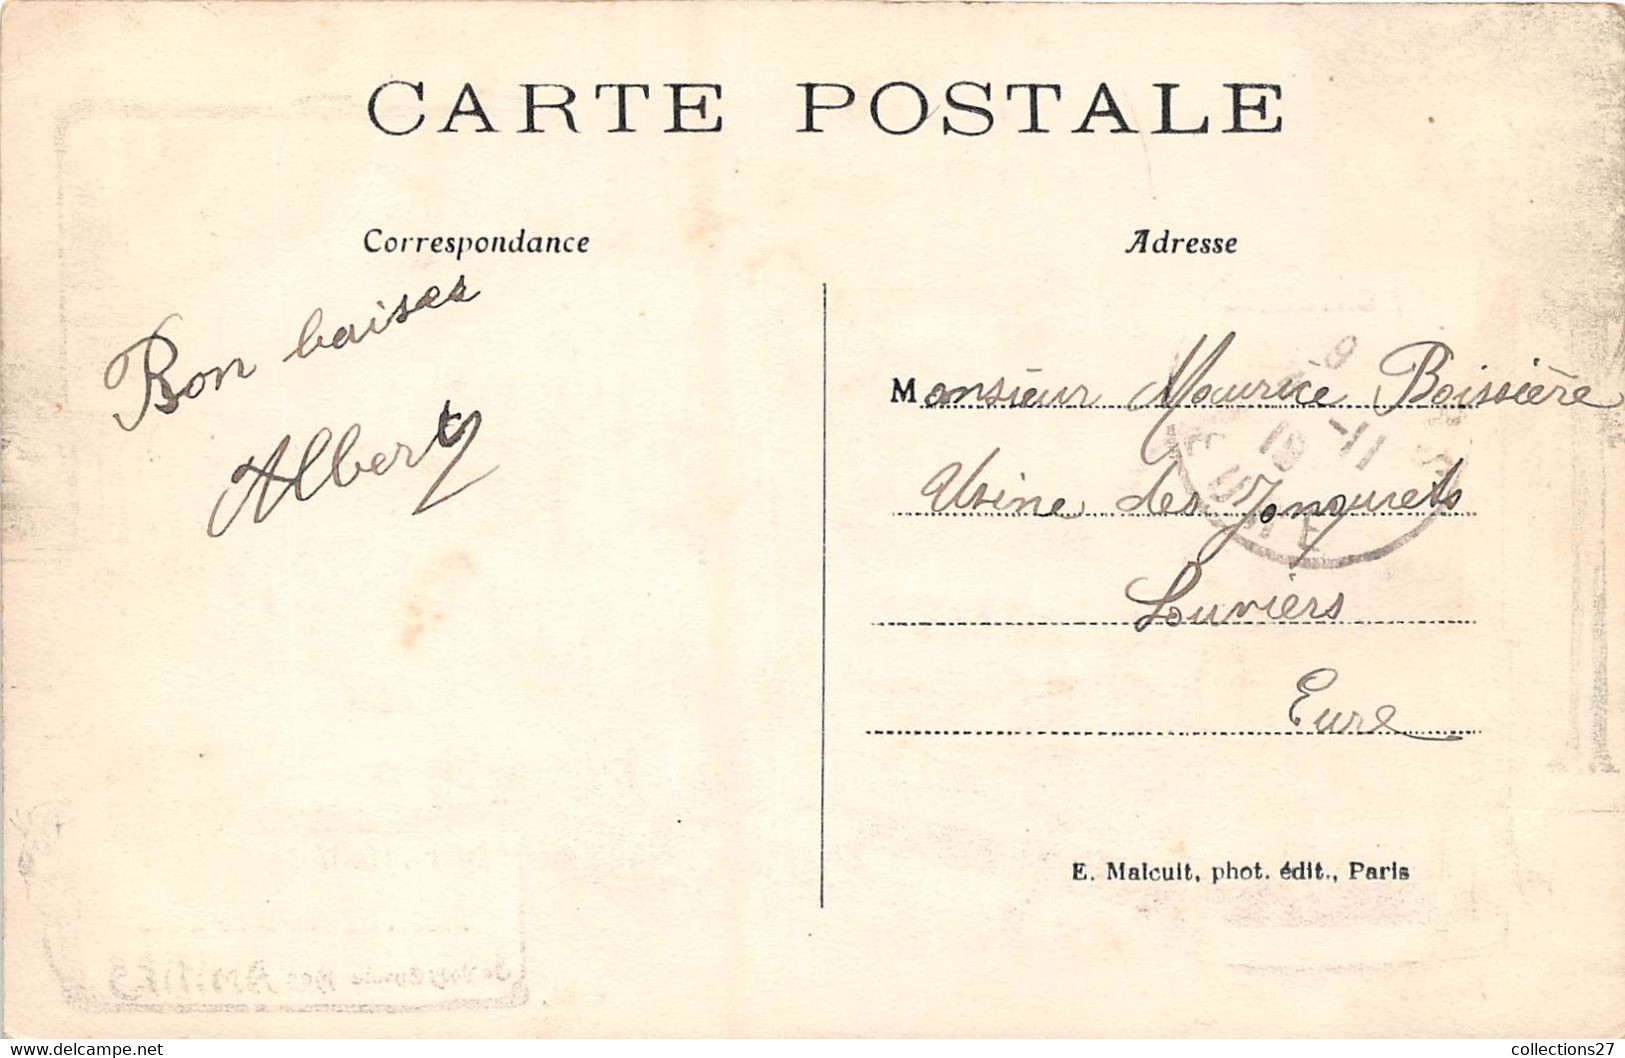 CARTE POSTALE
Correspondance
Bon baises
Albert
Adresse
Monsieur Maurice Boissière
Usine des Jonquets
Louviers
Eure
E. Malcuit, phot. édit., Paris
collections27